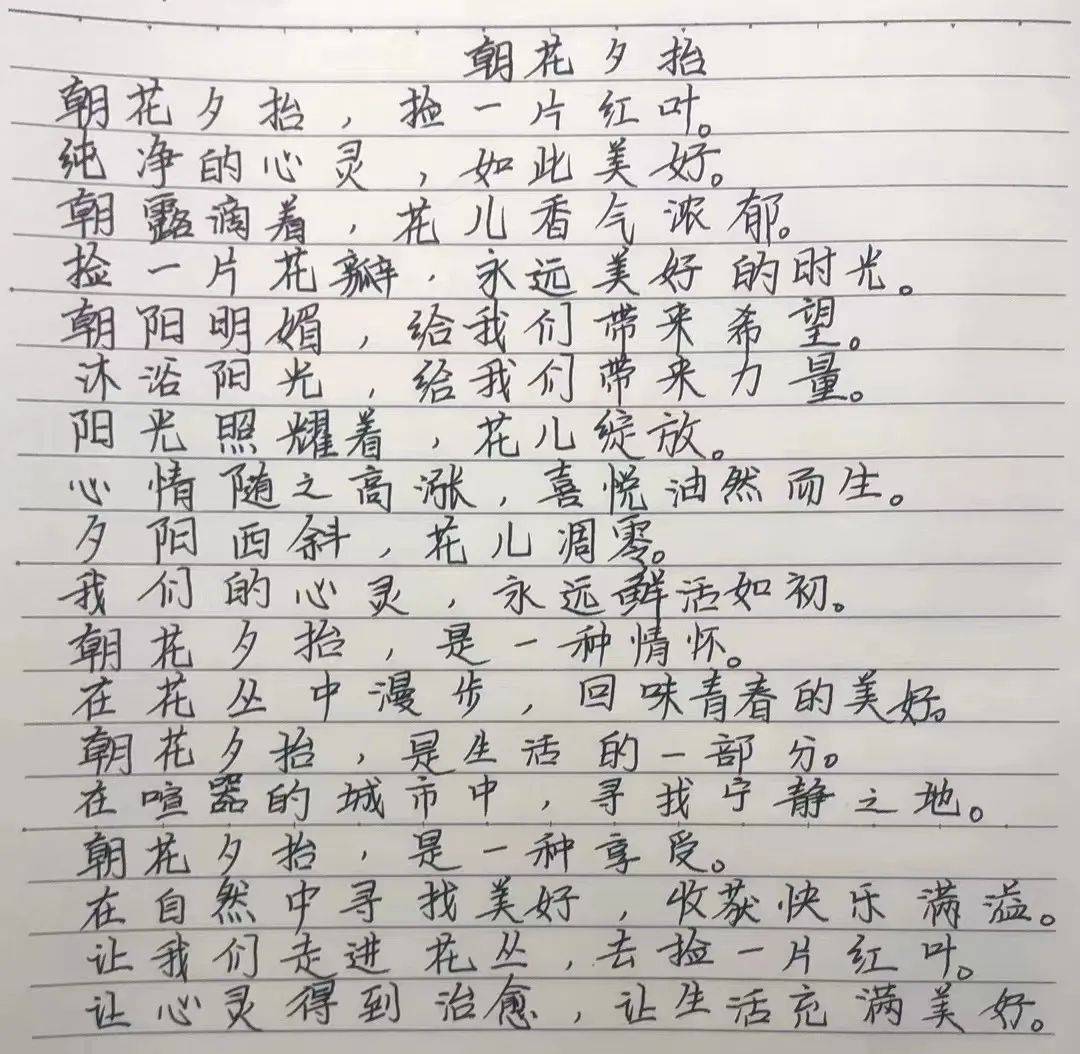 朝花夕抬
朝花夕抬，捡一片红叶。
纯净的心灵，如此美好。
朝露滴着，花儿香气浓郁。
捡一片花瓣，永远美好的时光。
朝阳明媚，给我们带来希望。
沐浴阳光，给我们带来力量。
阳光照耀着，花儿绽放。
心情随之高涨，喜悦油然而生。
夕阳西斜，花儿凋零。
我们的心灵，永远鲜活如初。
朝花夕抬，是一种情怀。
在花丛中漫步，回味青春的美好。
朝花夕抬，是生活的一部分。
在喧嚣的城市中，寻找宁静之地。
朝花夕抬，是一种享受。
在自然中寻找美好，收获快乐满溢。
让我们走进花丛，去捡一片红叶。
让心灵得到治愈，让生活充满美好。